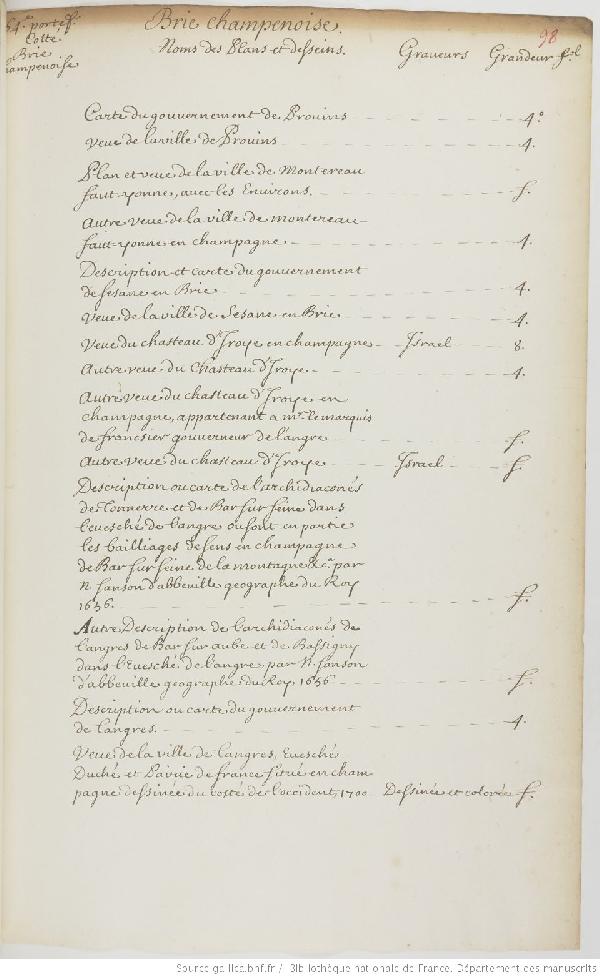 54.e portef.
Cotté
Brie
champenoise
Brie champenoise.
98
Noms des Plans et desseins. Graveurs Grandeur f.ol
Carte du gouvernement de Provins 4.o
Veue de la ville de Provins 4.
Plan et veue de la ville de Montereau
faut-yonne, avec les Environs. f.
Autre veue de la ville de montereau
faut-yonne en champagne. 4.
Description et carte du gouvernement
de Sesane en Brie 4.
Veue de la ville de Sesane en Brie 4.
Veue du chasteau d'Iroye en champagne Israel 8.
Autre veue du Chasteau d'Iroye. 4.
Autre veue du chasteau d'Iroye en
champagne, appartenant a mr. le marquis
de francsier gouverneur de langre f.
Autre Veue du chasteau d'Iroye Israel f.
Description ou carte de l'archidiaconés
de Tonnerre et de Bar sur seine dans
l'evesché de langre ou sont en partie
les bailliages de sens en champagne
de Bar sur seine de la montagne &c.a par
N. sanson d'abbeuille geographe du Roy
1656. f.
Autre Description de l'archidiaconés de
langres de Bar sur aube et de Bassigny
dans l'Evesché de langre par N. sanson
d'abbeuille geographe du Roy 1656 f.
Description ou carte du gouvernement
de langres. 4.
Veue de la ville de langres, Evesché
Duché et Pairie de france situé en cham
pagne dessinée du costé de l'occident, 1700 Dessinée et colorée f.
Source gallica.bnf.fr / Bibliothèque nationale de France. Département des manuscrits